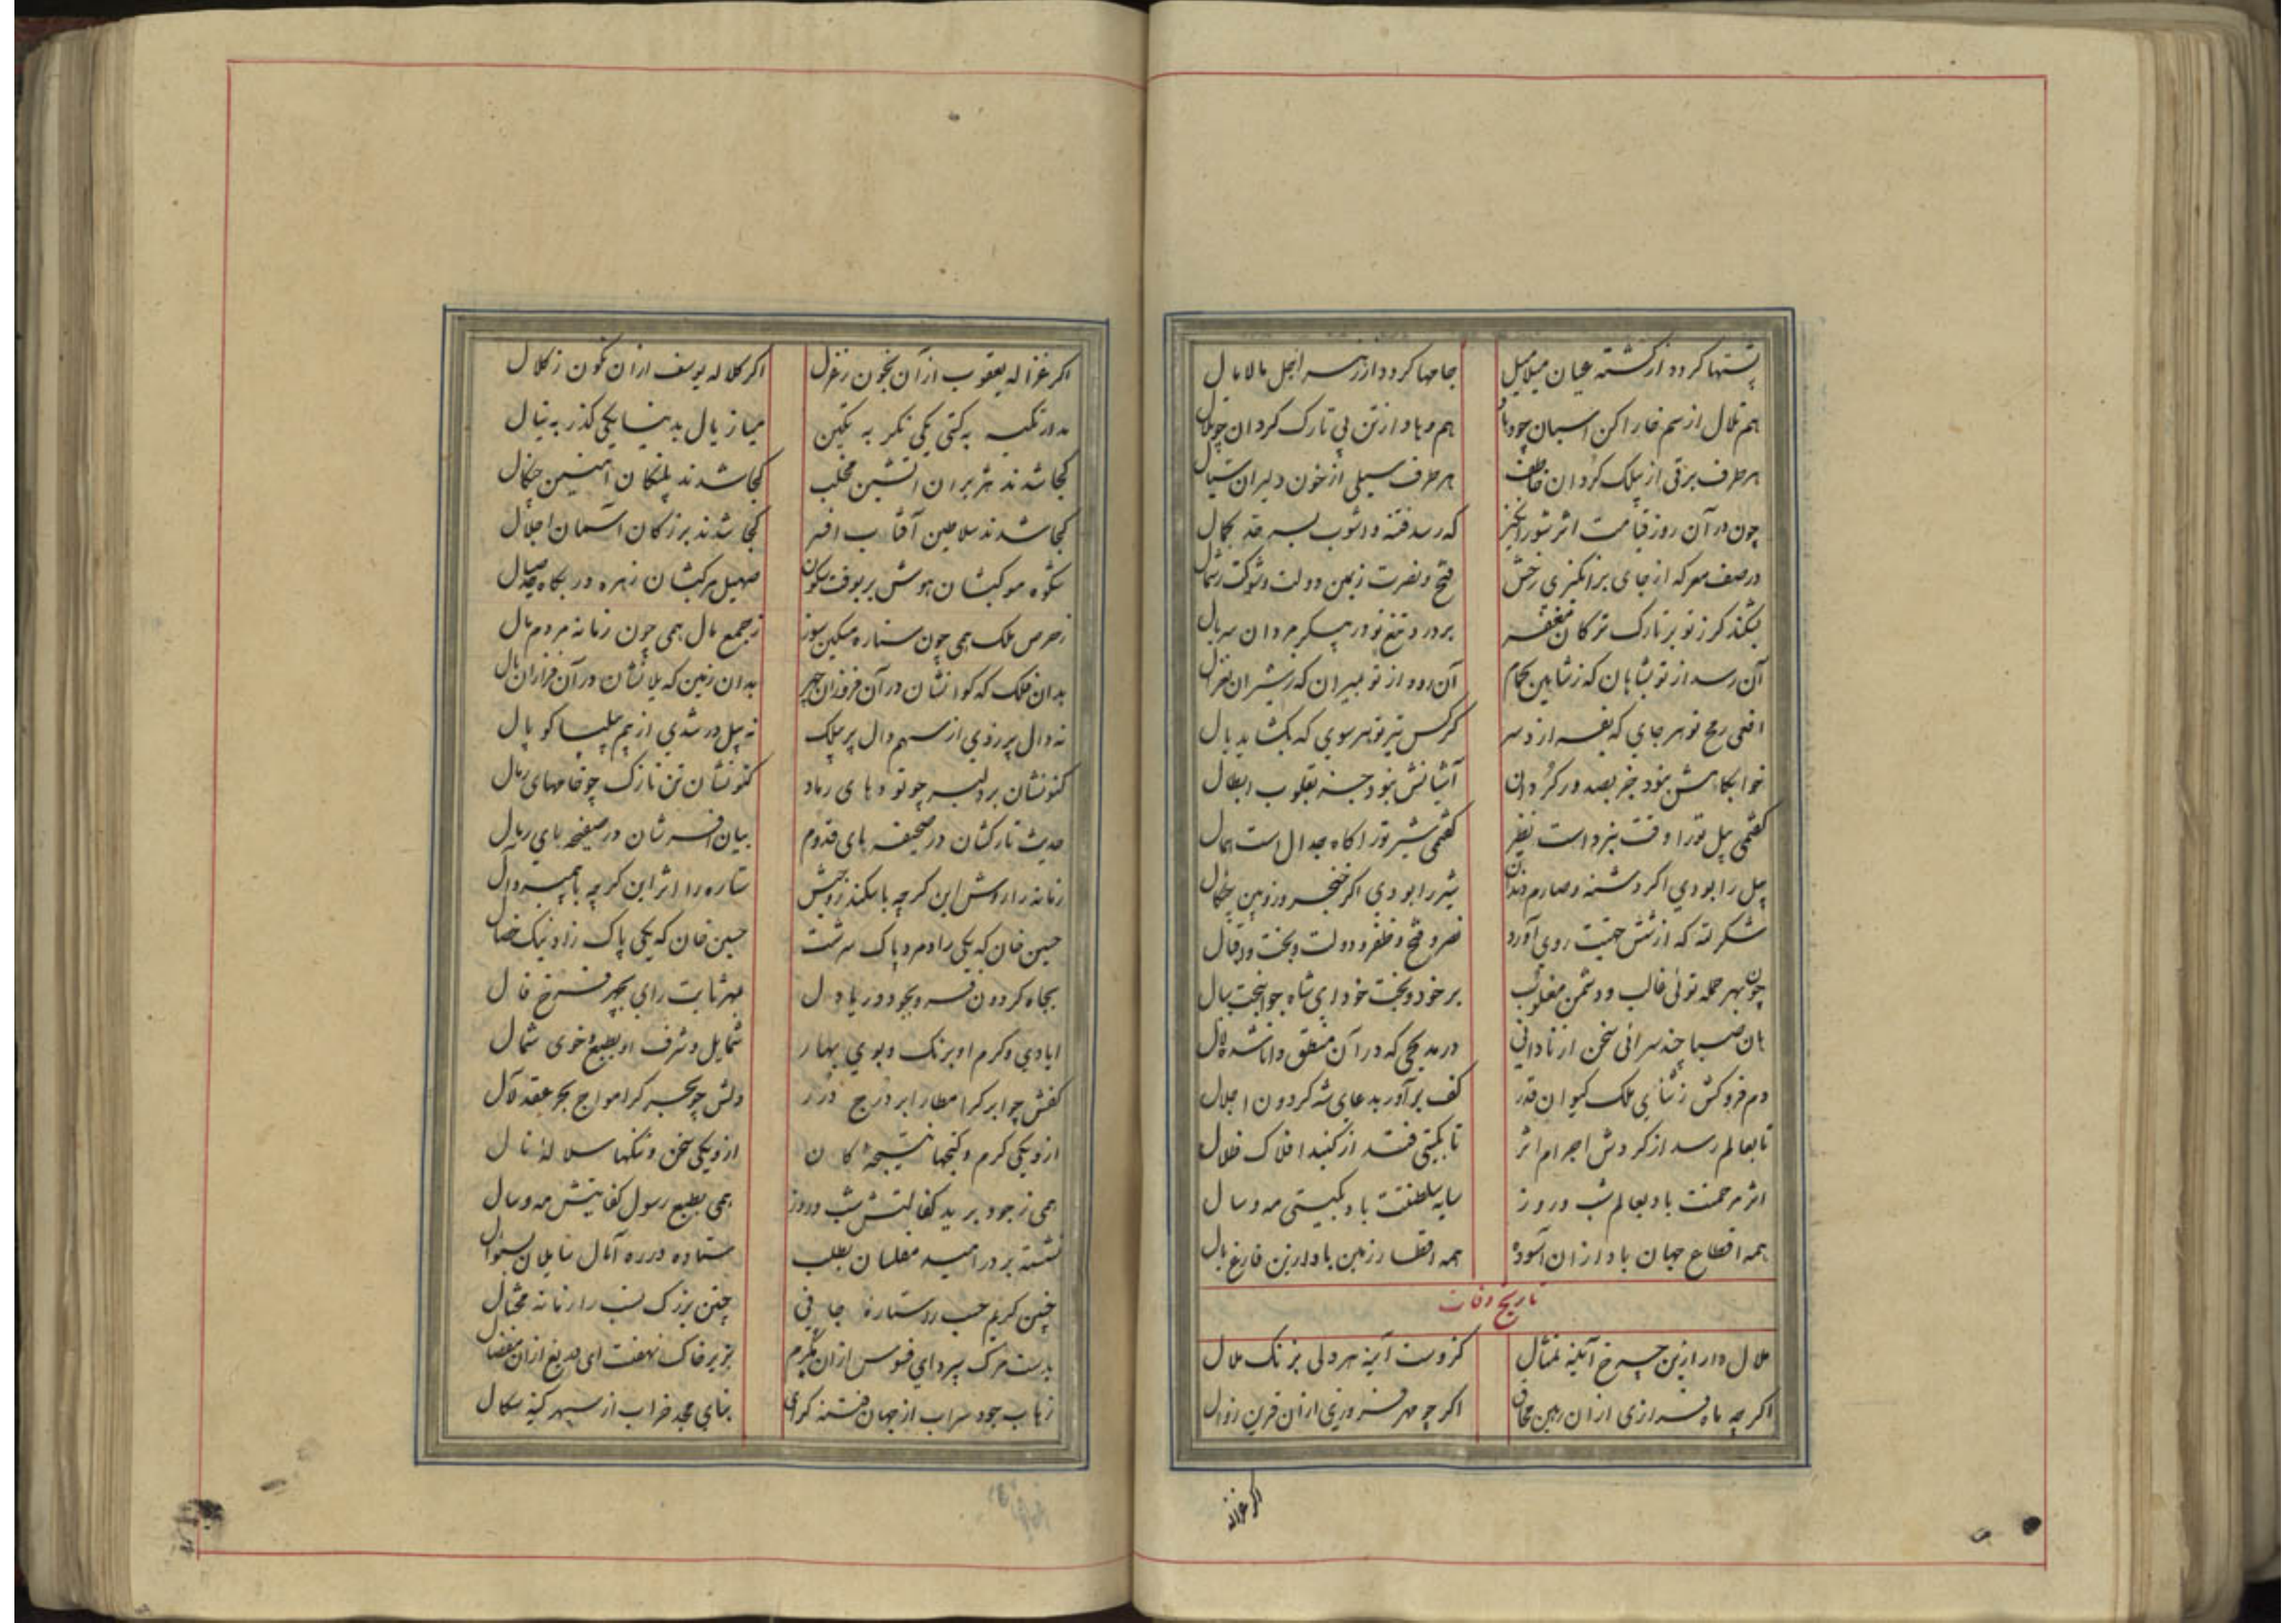 پشتها کردد از کشته عیان میلامیل جامها کردد از زهر اجل مالامال
هم تلال از سم خارا کن اسبان چو وهاد هم وهاد از تن بی تارک کردان چو تلال
هر طرف برقی از بیلک کردان خاطف هر طرف سیلی از خون دلیران سیال
چون در آن روز قیامت اثر شورانکیز که رسد فتنه و اشوب بسرحد کمال
در صف معرکه از جای برانکیزی رخش فتح و نصرت ز یمین دولت و شوکت ز شمال
بشکند کرز تو بر تارک ترکان مغفر بردرد تیغ تو در پیکر مردان سربال
آن رسد از تو بشاهان که ز شاهین بحمام آن رود از تو بمیران که ز شیران بغزال
افعی رمح تو هر جای که بفرازد سر کرکس تیر تو هر سوی که بکشاید بال
خوابکاهش نبود جز بصدور کردان آشیانش نبود جز بقلوب ابطال
کفتمی پیل تو را وقت نبرد است نظیر کفتمی شیر تو را کاه جدال است همال
پیل را بودی اکر دشنه و صارم دندان شیر را بودی اکر خنجر و زوبین چنکال
شکر لله که از شش جهتت روی آورد نصر و فتح و ظفر و دولت و بخت و اقبال
چون بهر حمله توئی غالب و دشمن مغلوب بر خود و بخت خود ای شاه جوانبخت ببال
هان صبا چند سرائی سخن از نادانی در مدیحی که در آن منطق دانا شده لال
دم فروکش ز ثنای ملک کیوان قدر کف برآور بدعای شه کردون اجلال
تا بعالم رسد از کردش اجرام اثر تا بکیتی فتد از کنبد افلاک ظلال
اثر مرحمتت باد بعالم شب و روز سایه سلطنتت باد بکیتی مه و سال
همه اقطاع جهان باد از ان آسوده همه اقطار زمین باد ازین فارغ بال
تاریخ وفات
ملال دار ازین چرخ آینه تمثال کزوست آینه هر دلی بزنک ملال
اکر چه ماه فرازی از ان رهین محاق اکر چو مهر فروزی از ان قرین زوال
اکر غزاله
اکر غزاله یعقوب ازان بخون ز غزال اکر کلاله یوسف ازان نکون ز کلال
بدور تکیه به کیتی یکی نکر به تکین میاز یال بدنیا یکی کذر به نیال
کجا شدند هژبران اتشین مخلب کجا شدند پلنکان آهنین چنکال
کجا شدند سلاطین آفتاب افسر کجا شدند بزرکان آسمان اجلال
شکوه موکبشان هوش بر بوقت سکون صهیل مرکبشان زهره در بکاه صیال
ز حرص ملک همی چون ستاره مسکین سوز ز جمع مال همی چون زمانه مردم مال
بدان فلک که کوانشان در آن فروزان چهر بدان زمین که یلانشان در آن فرازان یال
نه دال پر زدی از سهم دال پر بیلک نه پیل در شدی از بیم پیلسا کوپال
کنونشان بر دلبر چو توده های رماد کنونشان تن نازک چو خامهای رمال
حدیث تارکشان در صحیفه های قدوم بیان افسرشان در صفیحه های ریال
زمانه را روش این کرچه با سکندر و جیش ستاره را اثر این کرچه با پیمبر و آل
حسین خان که یکی رادمرد پاک سرشت حسین خان که یکی پاک زاد نیک خصال
بجاه کردون فر و بجود دریا دل بمهر ثابت رای بچهر فرخ فال
ایادی و کرم او برنک و بوی بهار شمایل و شرف او بطبع و خوی شمال
کفش چو ابر کر امطار ابر درج درر دلش چو بحر کر امواج بحر عقد لآل
از و یکی کرم و کنجها نتیجهٔ کان از و یکی سخن و تنکها سلالهٔ نال
همی ز جود برید کفالتش شب و روز همی بطبع رسول کفایتش مه و سال
نشسته بر در امید مفلسان بطلب ستاده در ره آمال سایلان بسئوال
چنین کریم حسب را ستاره جافی چنین بزرک نسب را زمانه محتال
بدست مرک سپرد ای فسوس ازان مکرم بزیر خاک نهفت ای دریغ ازان مفضال
زهاب جود سراب از جهان فتنه کرای بنای مجد خراب از سپهر کینه سکال